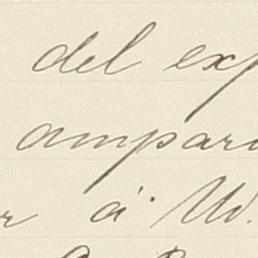 del exp
ampara
r á W.